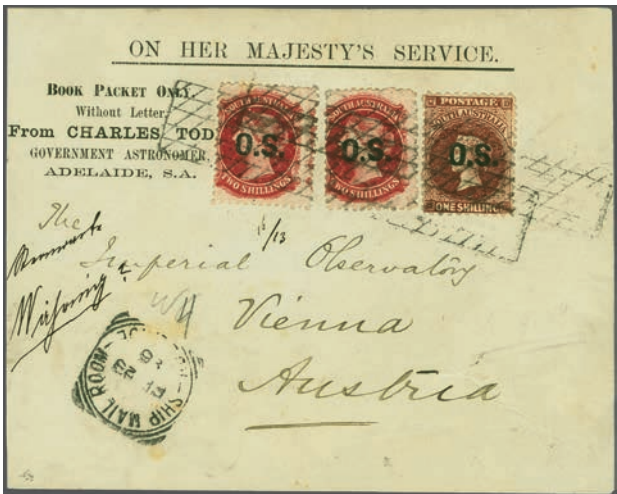 ON HER MAJESTY'S SERVICE.
BOOK PACKET ONLY.
Without Letter.
From CHARLES TOD
GOVERNMENT ASTRONOMER,
ADELAIDE, S.A.
SOUTH AUSTRALIA
O.S.
TWO SHILLINGS
SOUTH AUSTRALIA
O.S.
TWO SHILLINGS
POSTAGE
SOUTH AUSTRALIA
O.S.
ONE SHILLING
/13
The
Imperial Observatory
Vienna
Austria
Sternwarte
Währing
SHIP MAIL ROOM